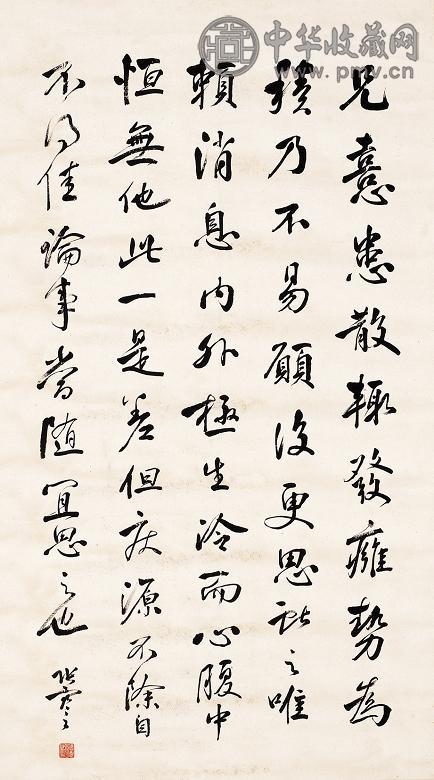 中华收藏网
www.pmv.cn
兄憙患散輒發癰勢為
積乃不易願復更思之唯
賴消息內外極生冷而心腹中
恒無他此一是差但疾源不除自
不得佳論事當隨宜思之也
張